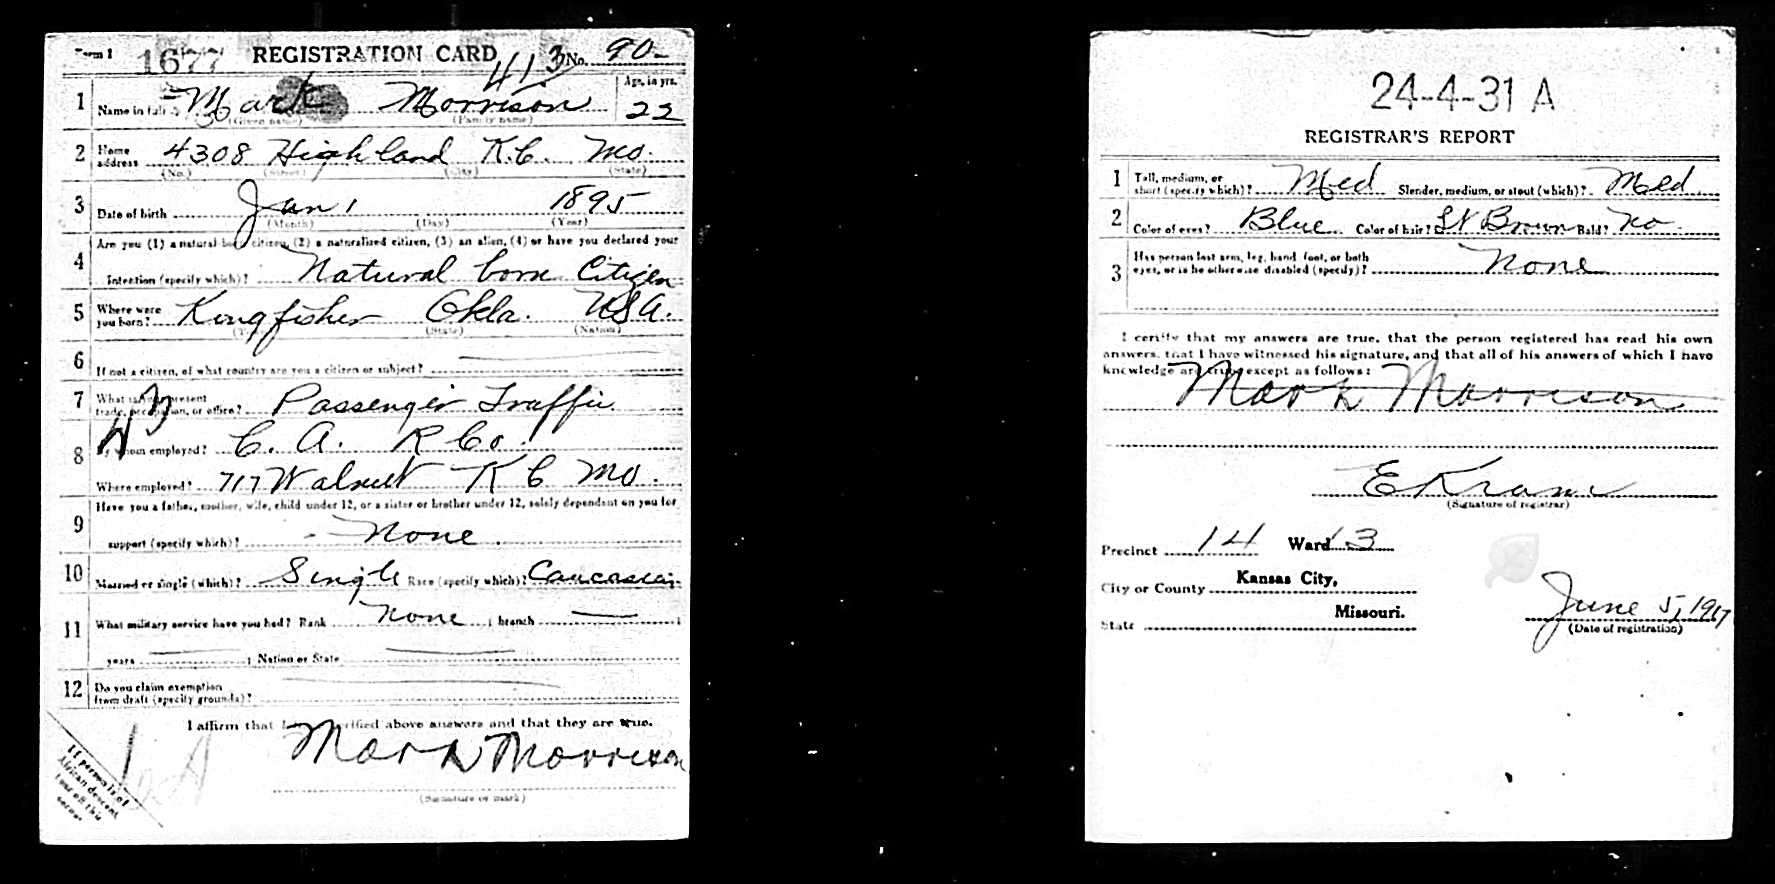 Form 1 1677 REGISTRATION CARD 413 No. 90
Age, in yrs.
1 Name in full Mark Morrison 22
(Given name) (Family name)
2 Home address 4308 Highland K.C. Mo.
(No.) (Street) (City) (State)
3 Date of birth Jan 1 1895
(Month) (Day) (Year)
Are you (1) a natural born citizen, (2) a naturalized citizen, (3) an alien, (4) or have you declared your
4 intention (specify which)? Natural born Citizen
5 Where were you born? Kingfisher Okla. USA.
(Town) (State) (Nation)
6 If not a citizen, of what country are you a citizen or subject?
7 What is your present trade, occupation, or office? Passenger Traffic
8 By whom employed? C. A. R Co.
Where employed? 717 Walnut K C Mo.
Have you a father, mother, wife, child under 12, or a sister or brother under 12, solely dependent on you for
9 support (specify which)? None
10 Married or single (which)? Single Race (specify which)? Caucasian
11 What military service have you had? Rank None ; branch — ;
years ; Nation or State
12 Do you claim exemption
from draft (specify grounds)?
I affirm that I verified above answers and that they are true.
Mark Morrison
(Signature or mark)
If person is of
African descent
tear off this
corner
24-4-31 A
REGISTRAR'S REPORT
1 Tall, medium, or
short (specify which)? Med Slender, medium, or stout (which)? Med
2 Color of eyes? Blue Color of hair? Lt Brown Bald? No
3 Has person lost arm, leg, hand, foot, or both
eyes, or is he otherwise disabled (specify)? None
I certify that my answers are true, that the person registered has read his own
answers, that I have witnessed his signature, and that all of his answers of which I have
knowledge are true, except as follows:
Mark Morrison
E Kram
(Signature of registrar)
Precinct 14 Ward 13
City or County Kansas City,
State Missouri.
June 5, 1917
(Date of registration)